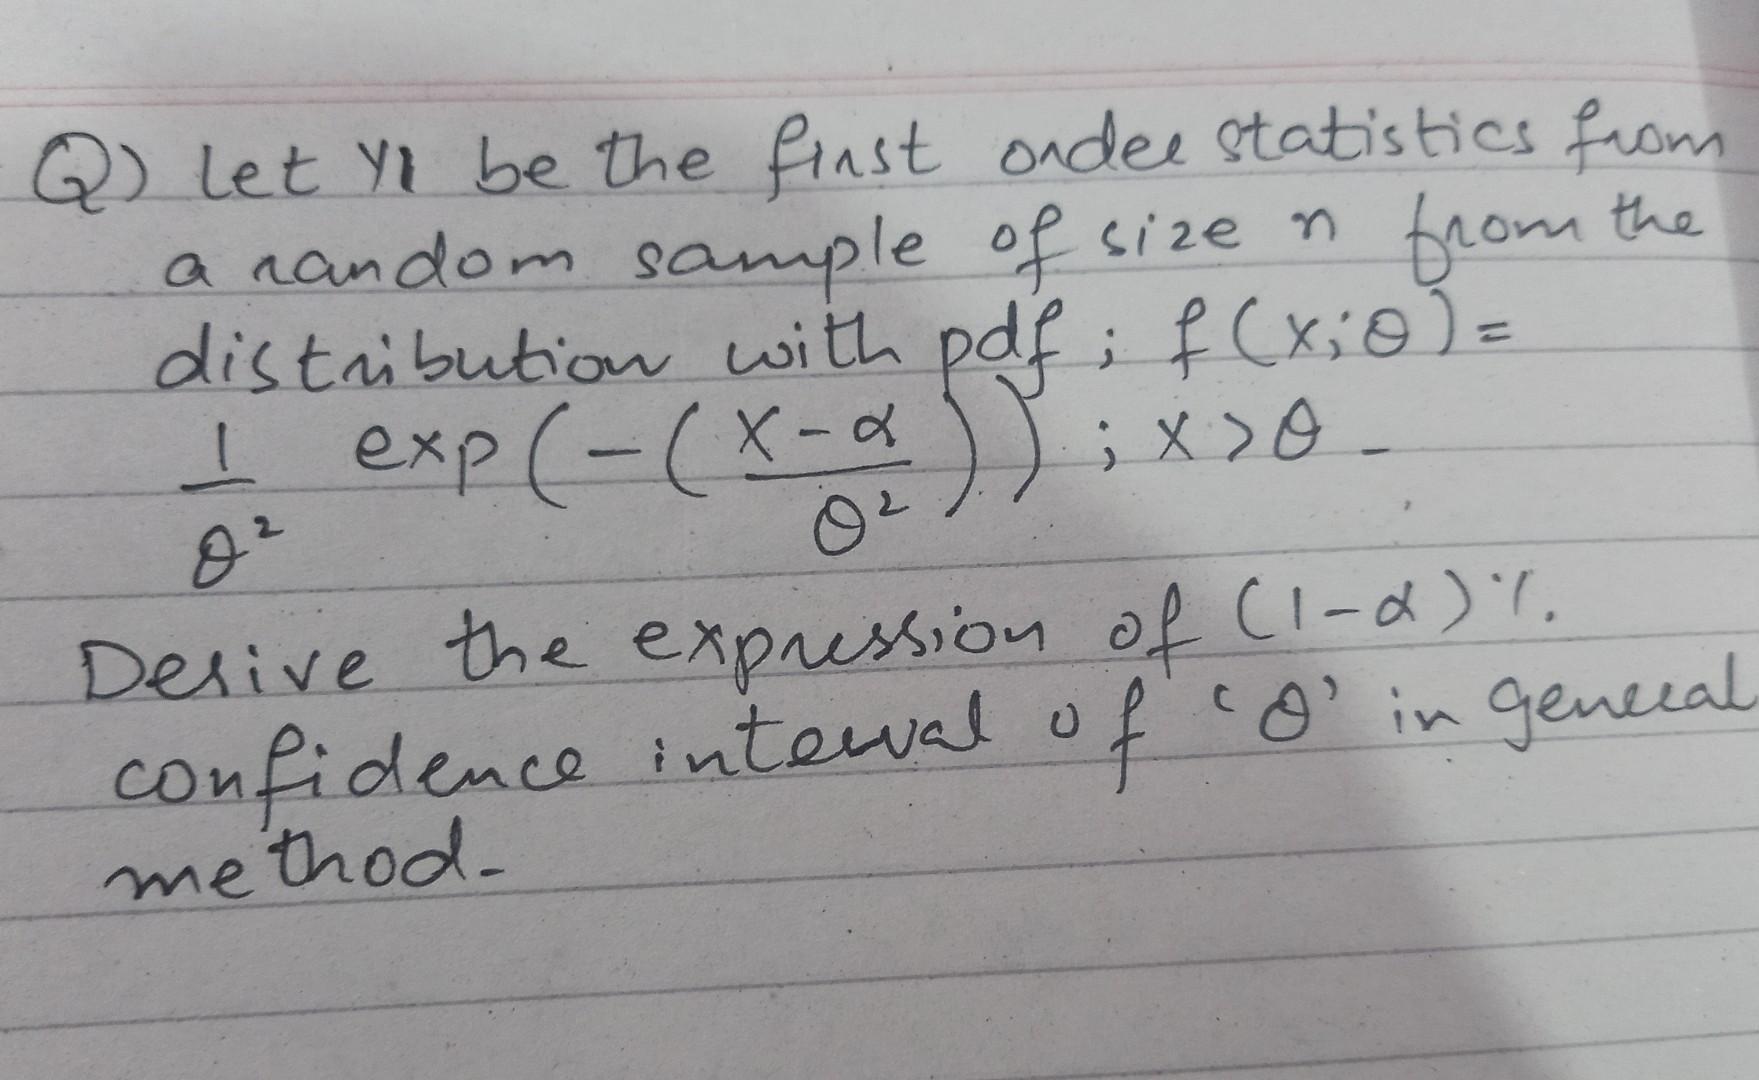 Q) Let Y1 be the first order statistics from
a random sample of size n from the
distribution with pdf ; f(x;θ)=
1/θ² exp(-(x-α/θ²)) ; x>θ -
Derive the expression of (1-α)%.
confidence interval of 'θ' in general
method-